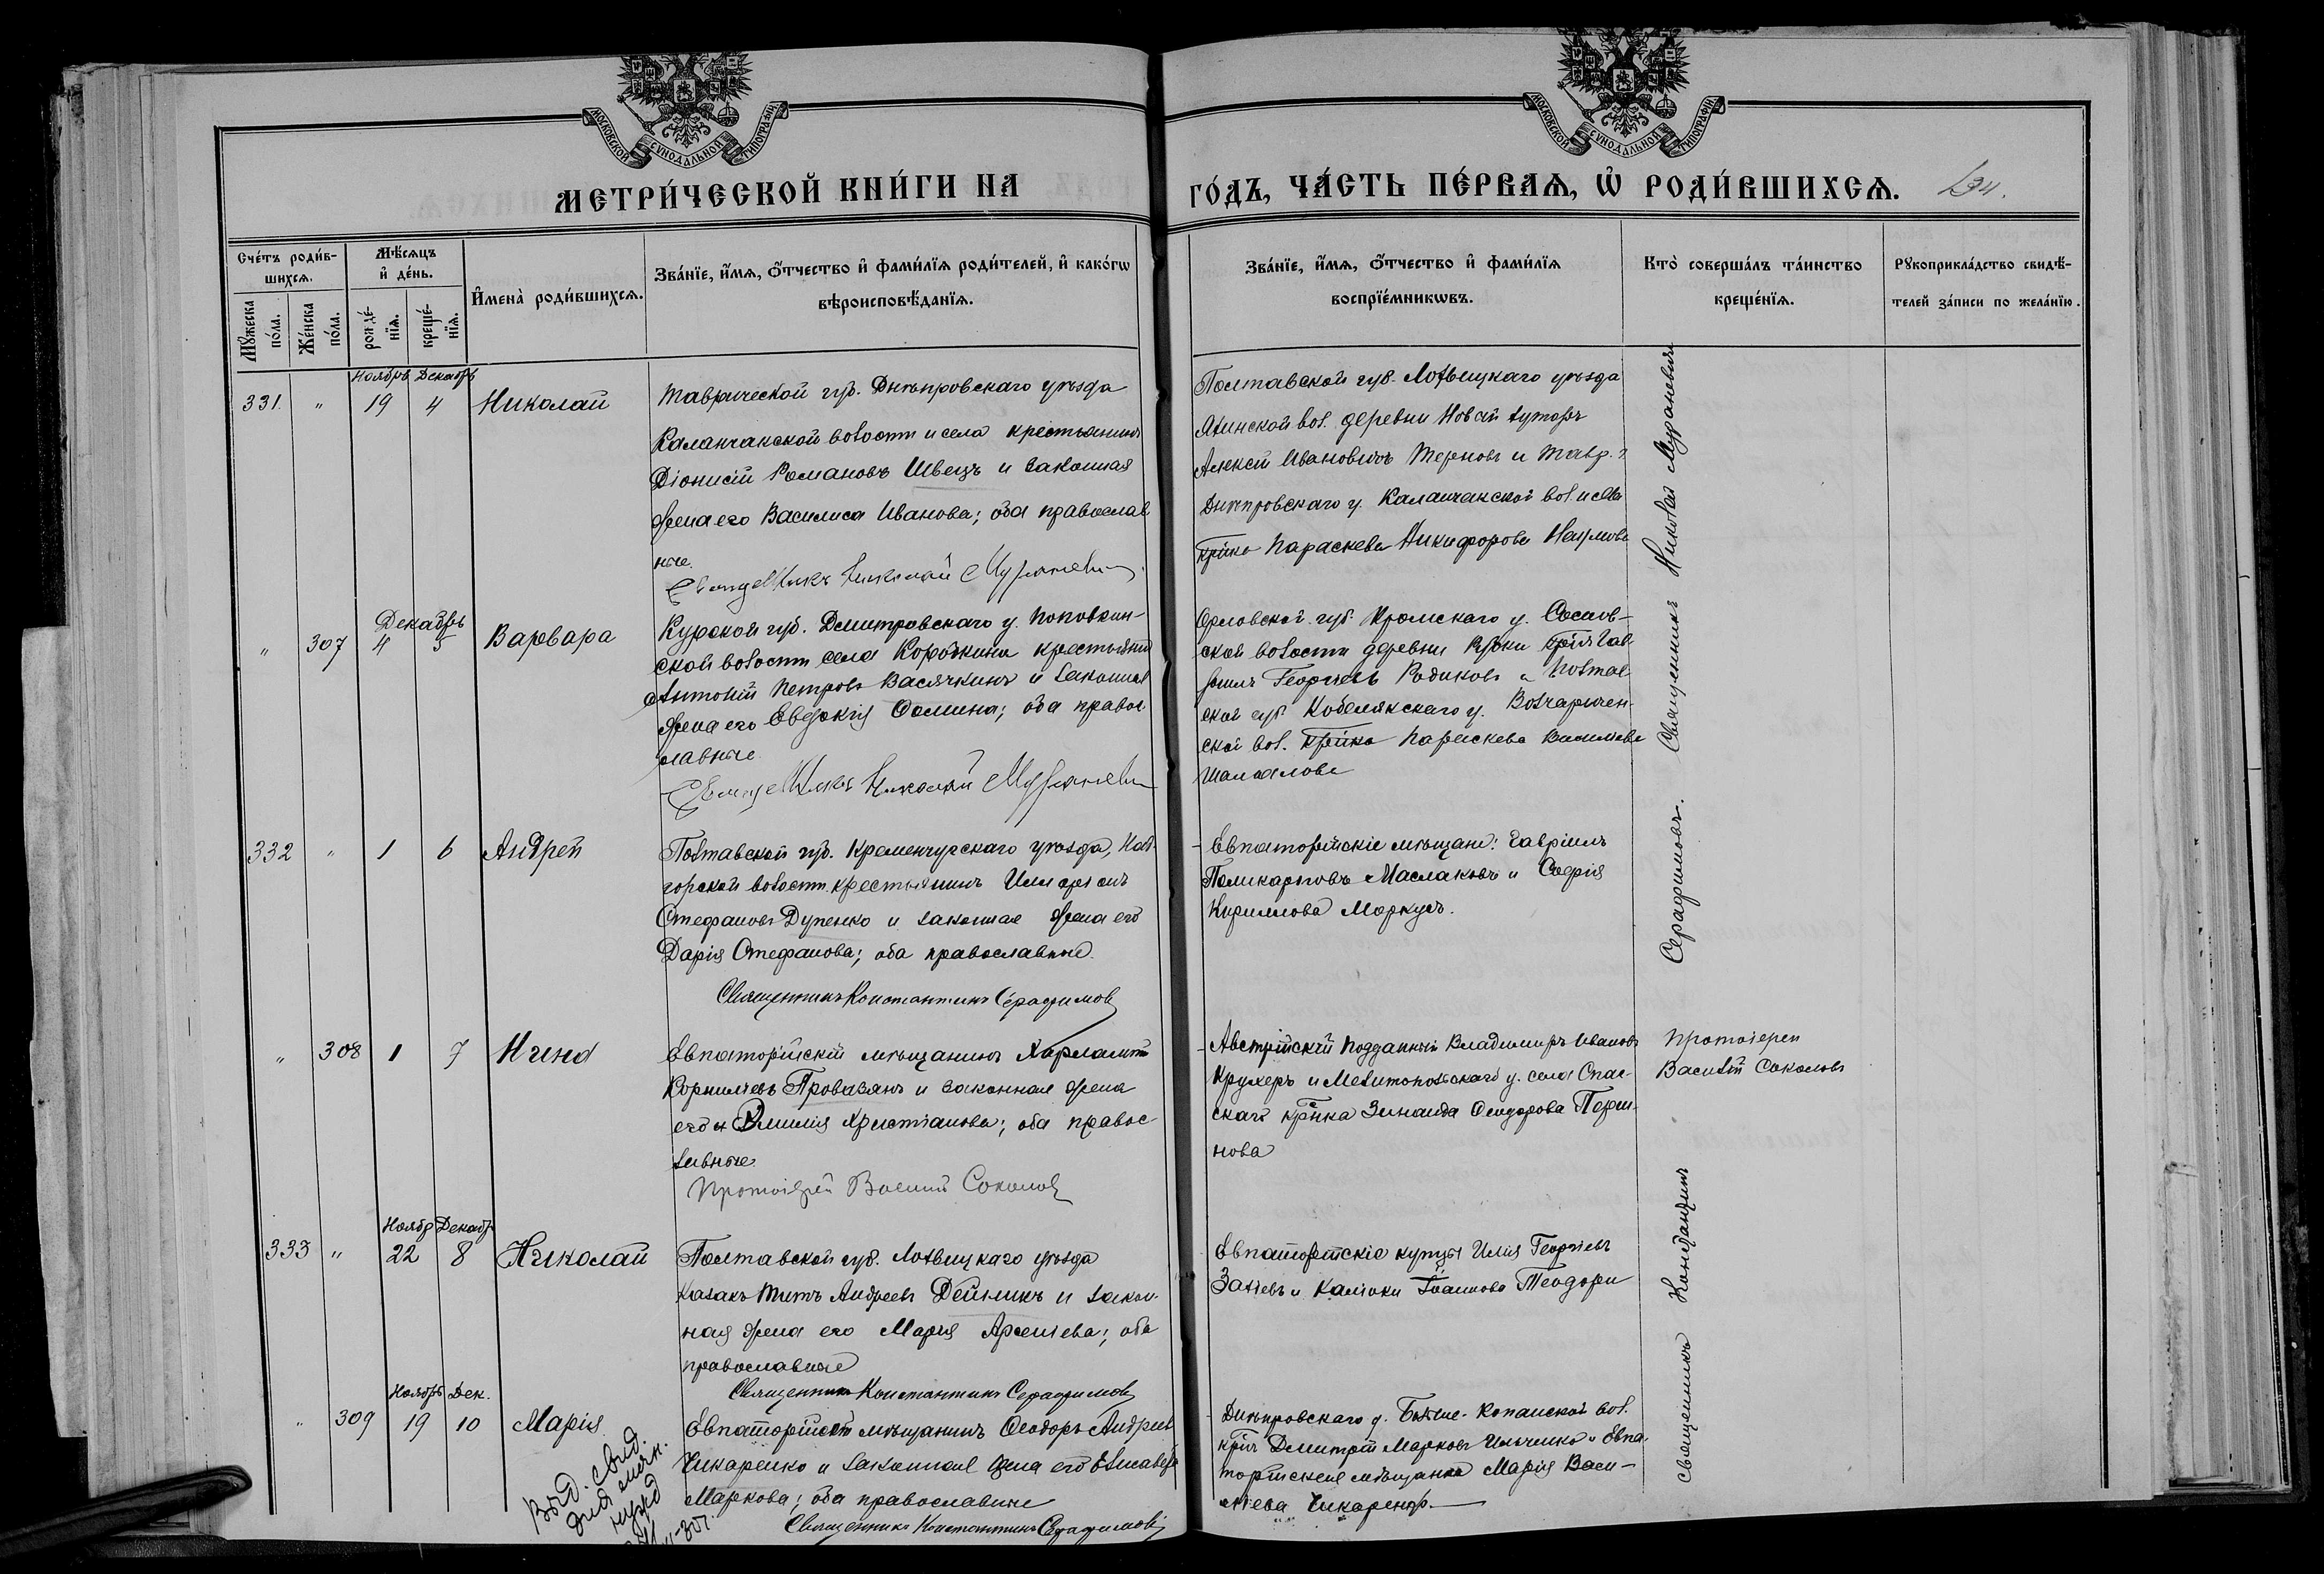 МОСКОВСКОЙ СѴНОДАЛЬНОЙ ТИПОГРАФІИ
МОСКОВСКОЙ СѴНОДАЛЬНОЙ ТИПОГРАФІИ
МЕТРИ́ЧЕСКОЙ КНИ́ГИ НА
ГО́ДЪ, ЧА́СТЬ ПЕ́РВАѦ, Ѡ҆ РОДИ́ВШИХСѦ.
Сче́тъ роди́в-
шихсѧ.
Мꙋ́жеска
по́ла.
Же́нска
по́ла.
Мѣ́сѧцъ
и҆ де́нь.
рожде́-
нїѧ.
креще́-
нїѧ.
И҆мена̀ роди́вшихсѧ.
Зва́нїе, и҆́мѧ, ѻ҆́тчество и҆ фами́лїѧ роди́телей, и҆ како́гѡ
вѣроисповѣ́данїѧ.
Зва́нїе, и҆́мѧ, ѻ҆́тчество и҆ фами́лїѧ
воспрїе́мникѡвъ.
Кто̀ соверша́лъ та́инство
креще́нїѧ.
Рꙋкоприкла́дство свидѣ́-
телей за́писи по жела́нїю.
Ноябрь Декабрь
331. " 19 4 Николай
Таврической губ. Днѣпровскаго уѣзда
Каланчакской волости и села крестьянинъ
Діонисій Романовъ Швецъ и законная
жена его Василиса Иванова; оба православ
ные.
Священникъ Николай Мураневич
Полтавской губ. Лохвицкаго уѣзда
вол. деревни Новой хуторъ
Алексѣй Ивановичъ Терновъ и Тавр. г
Днѣпровскаго у. Каланчакской вол. и села
кр-нка Параскева Никифорова Наумова
Декабрь
" 307 4 5 Варвара
Курской губ. Дмитровскаго у. Поповкин-
ской волости села Коробкина крестьянинъ
Антоній Петровъ Васячкинъ и законная
жена его Евдокія Ѳомина; оба правос
лавные
Священникъ Николай Мураневич
Орловской губ. Кромскаго у.
ской волости деревни кр-нъ Гав
ріилъ Георгіевъ Родиковъ и Полтав
ской губ. Кобелякскаго у.
ской вол. кр-нка Параскева Васильева
Священникъ Николай Мураневичъ
332 " 1 6 Андрей
Полтавской губ. Кременчугскаго уѣзда,
горской волости крестьянинъ Илларіонъ
Стефановъ Дупенко и законная жена его
Дарія Стефанова; оба православные.
Священникъ Константинъ Серафимовъ
Евпаторійскіе мѣщане: Гавріилъ
Поликарповъ Маслаковъ и Софія
Кириллова Маркусъ.
" 308 1 7 Нина
Евпаторійскій мѣщанинъ Харлампій
Корниліевъ Провазанъ и законная жена
его Эмилія Христіанова; оба правос
лавные
Протоіерей Василій Соколовъ
Австрійскій подданный Владимиръ Ивановъ
Кружеръ и Мелитопольскаго у. села Спас-
скаго кр-нка Зинаида Ѳеодорова
нова
Протоіерей
Василій Соколовъ
Ноябр Декабр
333 " 22 8 Николай
Полтавской губ. Лохвицкаго уѣзда
казакъ Титъ Андреевъ Дейникъ и закон-
ная жена его Марія Арсеніева; оба
православные
Священникъ Константинъ Серафимовъ
Евпаторійскіе купцы Илія Георгіевъ
и Каліопи Іоаннова Теодори
Ноябрь Дек.
" 309 19 10 Марія
Евпаторійскій мѣщанинъ Ѳеодоръ Андреевъ
Чикаренко и законная жена его Елисавета
Маркова; оба православные
Священникъ Константинъ Серафимовъ
Днѣпровскаго у. Копанской вол.
кр-нъ Димитрій Марковъ Ильченко и Евпа
торійская мѣщанка Марія Васи-
ліева Чикаренко.
Священникъ Константинъ
Серафимовъ.
Выд. свид.
для личн.
нужд